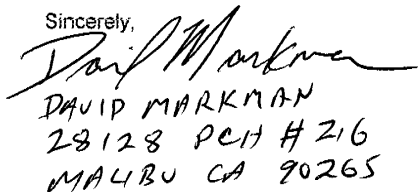 Sincerely,
David Markman
DAVID MARKMAN
28128 PCH # 216
MALIBU CA 90265